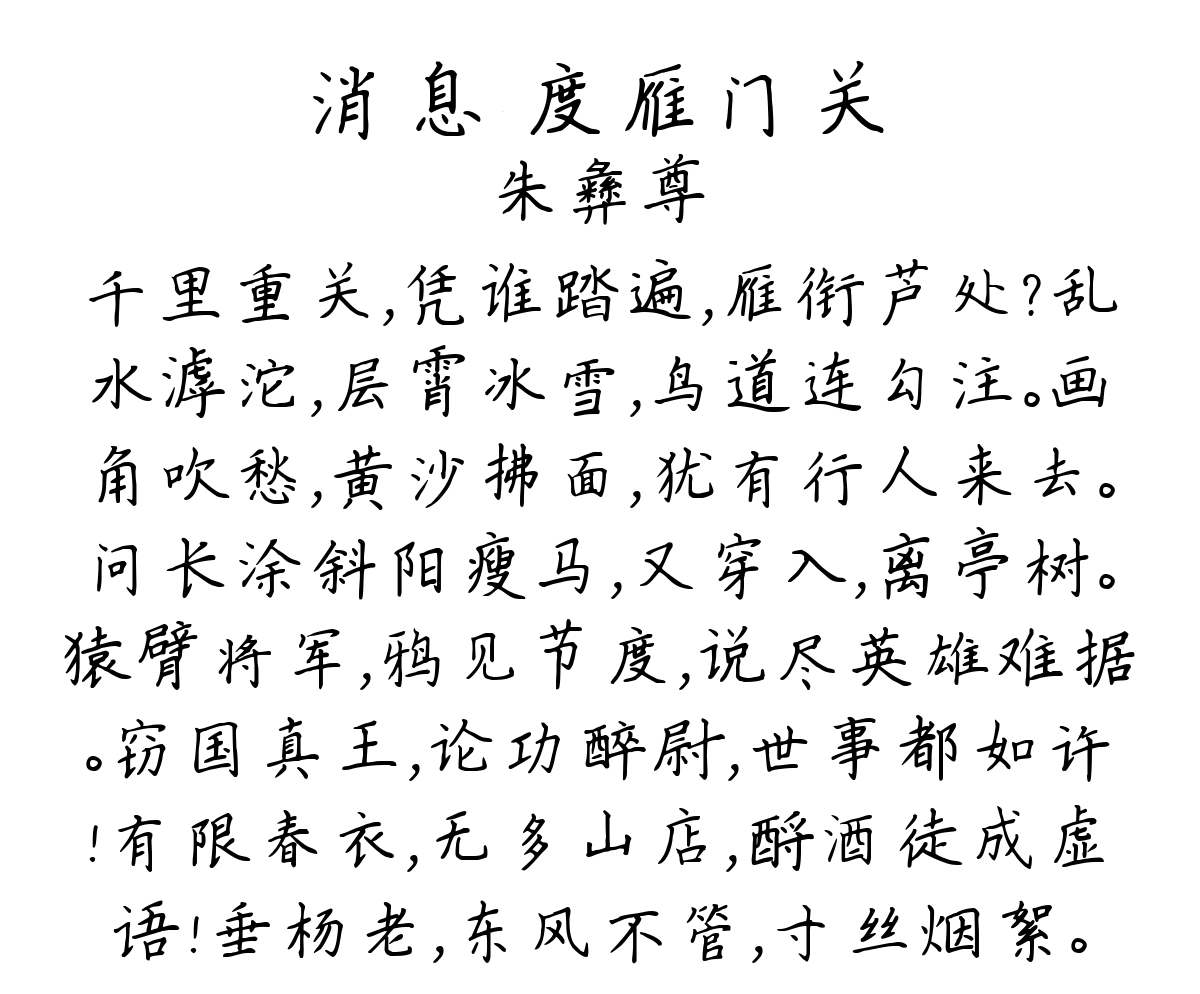 消息 度雁门关
朱彝尊
千里重关,凭谁踏遍,雁衔芦处?乱
水滹沱,层霄冰雪,鸟道连勾注。画
角吹愁,黄沙拂面,犹有行人来去。
问长涂斜阳瘦马,又穿入,离亭树。
猿臂将军,鸦见节度,说尽英雄难据
。窃国真王,论功醉尉,世事都如许
!有限春衣,无多山店,酹酒徒成虚
语!垂杨老,东风不管,寸丝烟絮。